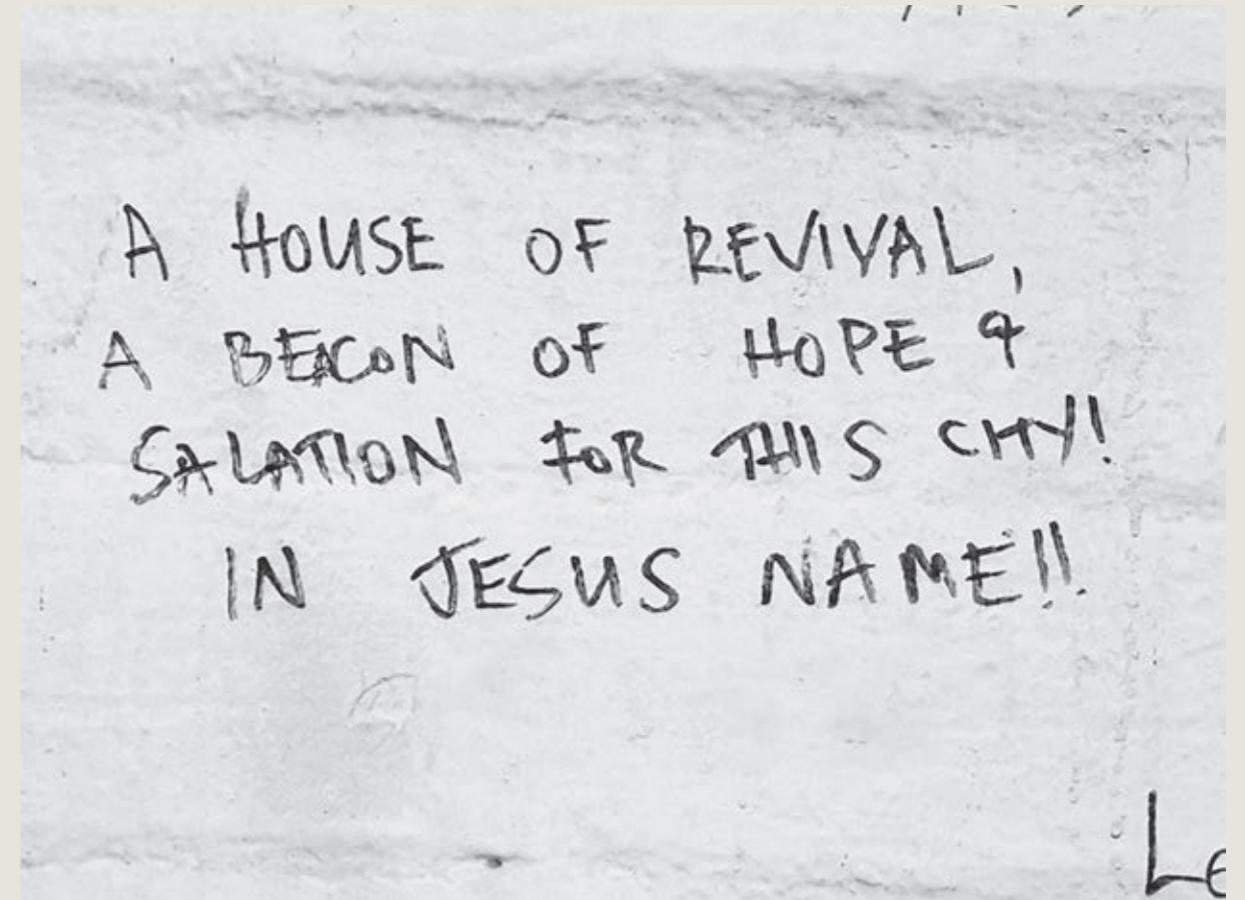 A HOUSE OF REVIVAL,
A BEACON OF HOPE &
SALATION FOR THIS CITY!
IN JESUS NAME!!
Le